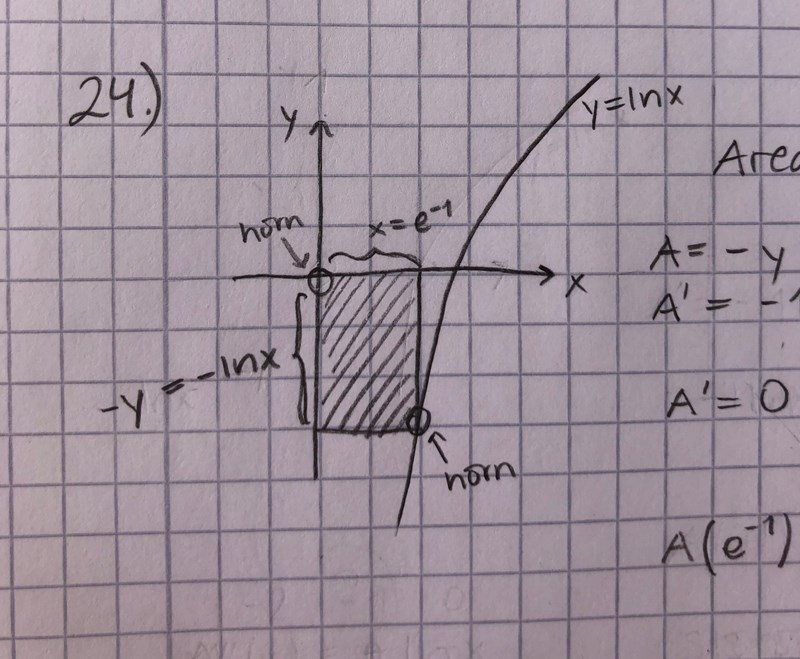 24.)
y
y=lnx
Area
hörn
x=e⁻¹
x
A= -y
A' = -1
-y = -lnx
A' = 0
hörn
A(e⁻¹)